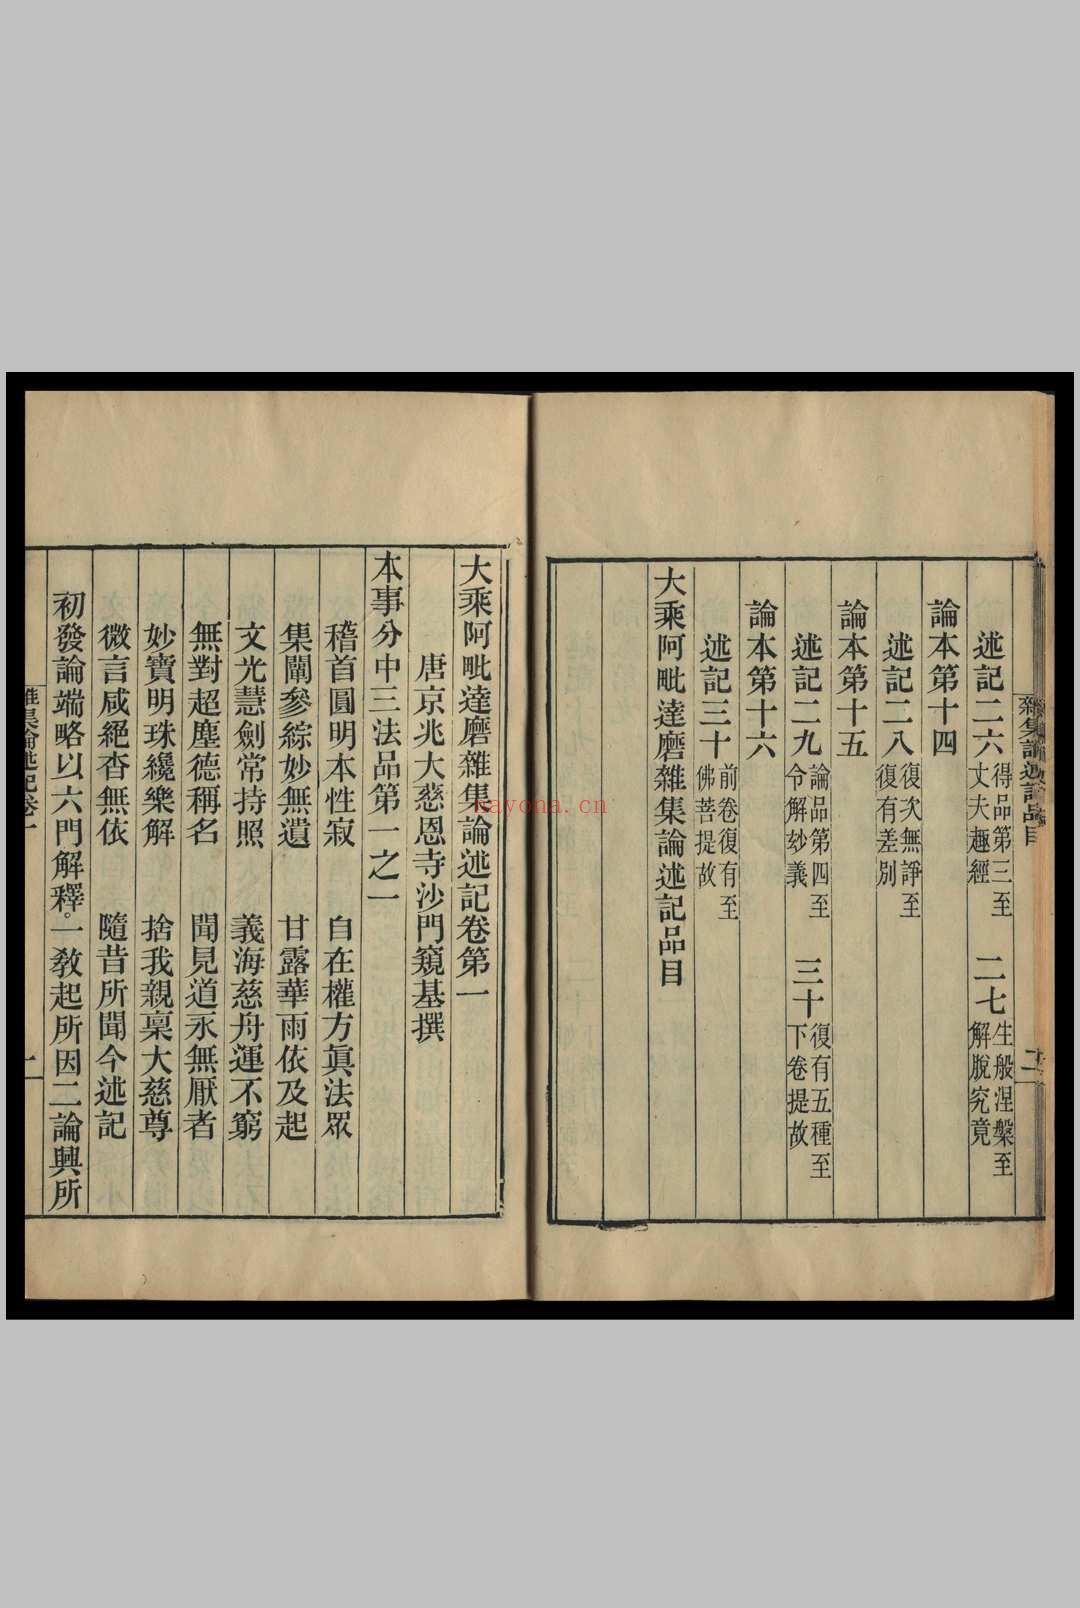 雜集論述記品目
二
述記二六 得品第三至丈夫趣經 二七 生般涅槃至解脫究竟
論本第十四
述記二八 復次無諍至復有差別
論本第十五
述記二九 論品第四至令解玅義 三十 復有五種至下卷提故
論本第十六
述記三十 前卷復有至佛菩提故
大乘阿毗達磨雜集論述記品目
大乘阿毗達磨雜集論述記卷第一
唐京兆大慈恩寺沙門窺基撰
本事分中三法品第一之一
稽首圓明本性寂 自在權方眞法眾
集闡參綜妙無遺 甘露華雨依及起
文光慧劍常持照 義海慈舟運不窮
無對超塵德稱名 聞見道永無厭者
妙寶明珠纔樂解 捨我親稟大慈尊
微言咸絕杳無依 隨昔所聞今述記
初發論端略以六門解釋。一教起所因二論興所
雜集論述記卷一
kayona.cn